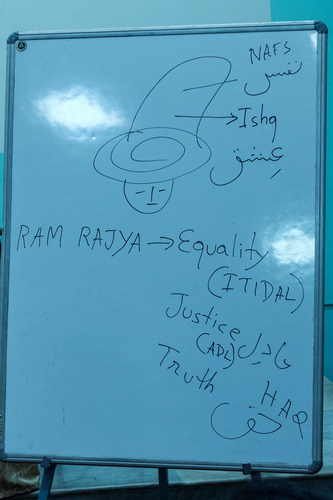 NAFS
نفس
Ishq
عشق
RAM RAJYA → Equality
(ITIDAL)
Justice
(ADL) عادل
Truth
HAQ
حق